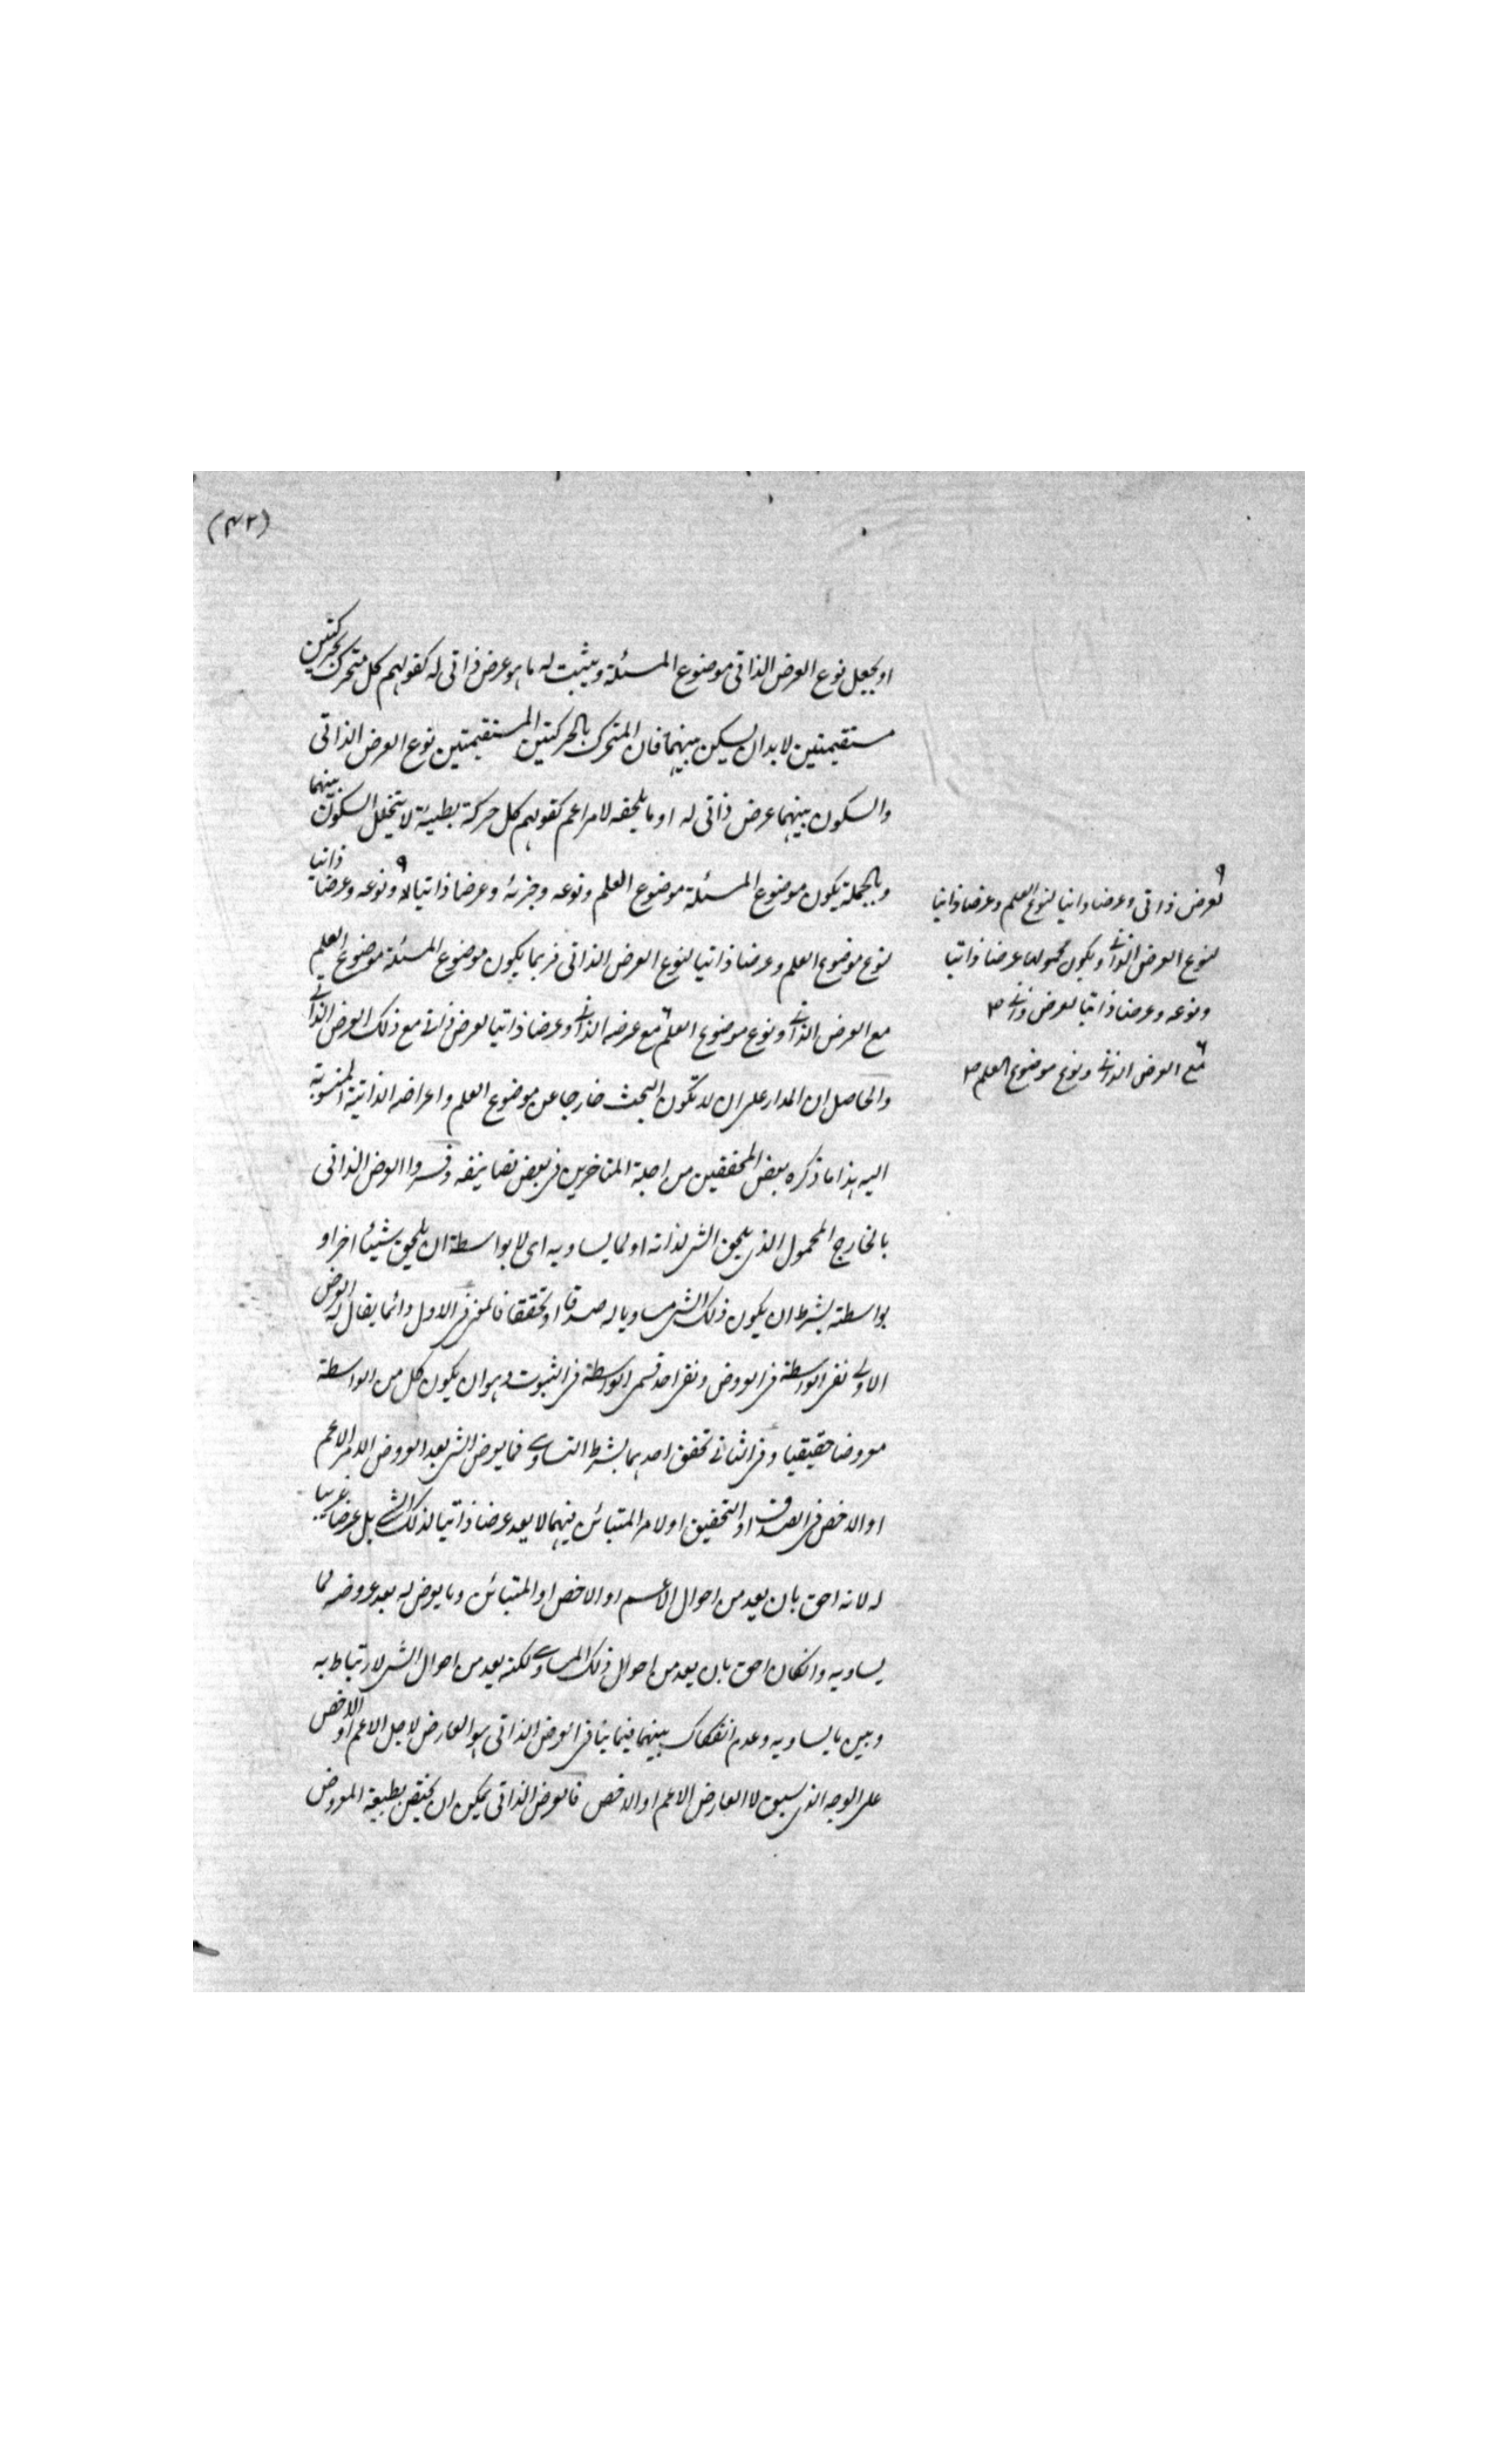 (٤٢)
او يجعل نوع العرض الذاتى موضوع المسئلة ويثبت له ما هو عرض ذاتى له كقولهم كل متحرك بحركتين
مستقيمتين لا بد ان يسكن بينهما فان المتحرك بالحركتين المستقيمتين نوع العرض الذاتى
والسكون بينهما عرض ذاتى له او ما يلحقه لامر اعم كقولهم كل حركة بطيئة لا يتخلل السكون بينهما
وبالجملة يكون موضوع المسئلة موضوع العلم ونوعه وجزئه وعرضا ذاتيا له ونوعه وعرضا ذاتيا
لنوع موضوع العلم وعرضا ذاتيا لنوع العرض الذاتى فربما يكون موضوع المسئلة موضوع العلم
مع العرض الذاتى ونوع موضوع العلم مع عرضه الذاتى وعرضا ذاتيا لعرض ذاتى مع ذلك العرض الذاتى
والحاصل ان المدار على ان لا تكون البحث خارجا عن موضوع العلم واعراضه الذاتية المنسوبة
اليه هذا ما ذكره بعض المحققين من اجلة المتاخرين فى بعض تصانيفه وفسروا العرض الذاتى
بالخارج المحمول الذى يلحق الشى لذاته او لما يساويه اى لا بواسطة ان يلحق شيئا اخر او
بواسطته بشرط ان يكون ذلك الشى مساويا له صدقا او تحققا فالمعنى فى الاول وانما يقال له العرض
الاولى نفى الواسطة فى العروض ونفى احد قسمى الواسطة فى الثبوت وهو ان يكون كل من الواسطة
معروضا حقيقيا وفى الثانى تحقق احدهما بشرط التساوى فما يعرض الشى بعد العروض الامر الاعم
او الاخص فى الصدق او التحقيق او لامر المتبائن فيهما لا يعد عرضا ذاتيا لذلك الشى بل عرضا غريبا
له لانه احق بان يعد من احوال الاعم او الاخص او المتبائن وما يعرض له بعد عروضه لما
يساويه وانكان احق بان يعد من احوال ذلك المساوى لكنه يعد من احوال الشى لارتباط به
وبين ما يساويه وعدم انفكاك بينهما فيما ينافى العرض الذاتى هو العارض لاجل الاعم او الاخص
على الوجه الذى سبق لا العارض الاعم او الاخص فالعرض الذاتى يمكن ان يختص بطبيعة المعروض
لعرض ذاتى وعرضا ذاتيا لنوع العلم وعرضا ذاتيا
لنوع العرض الذاتى ويكون محمولها عرضا ذاتيا
ونوعه وعرضا ذاتيا لعرض ذاتى
مع العرض الذاتى ونوع موضوع العلم